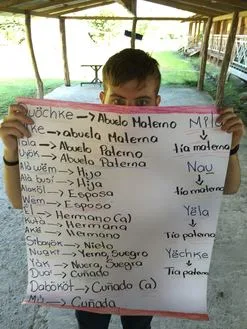 Wöchke → Abuelo Materno
ke → abuela Materna
Tala → Abuelo Paterno
Uyök → Abuela Paterna
Alà wëm → Hijo
Alà busi → Hija
Alaköl → Esposa
Wëm → Esposo
Ël → Hermano (a)
Kuta → Hermana
Akë → Hermano
Sibayök → Nieto
Nuàkt → Yerno, Suegro
Yàk → Nuera, Suegra
Dua' → Cuñado
Dabököt → Cuñado (a)
Mà → Cuñada
Mìle
↓
tía materna
Nau
↓
tío materno
Yëla
↓
tío paterno
Yëchke
↓
Tía paterna